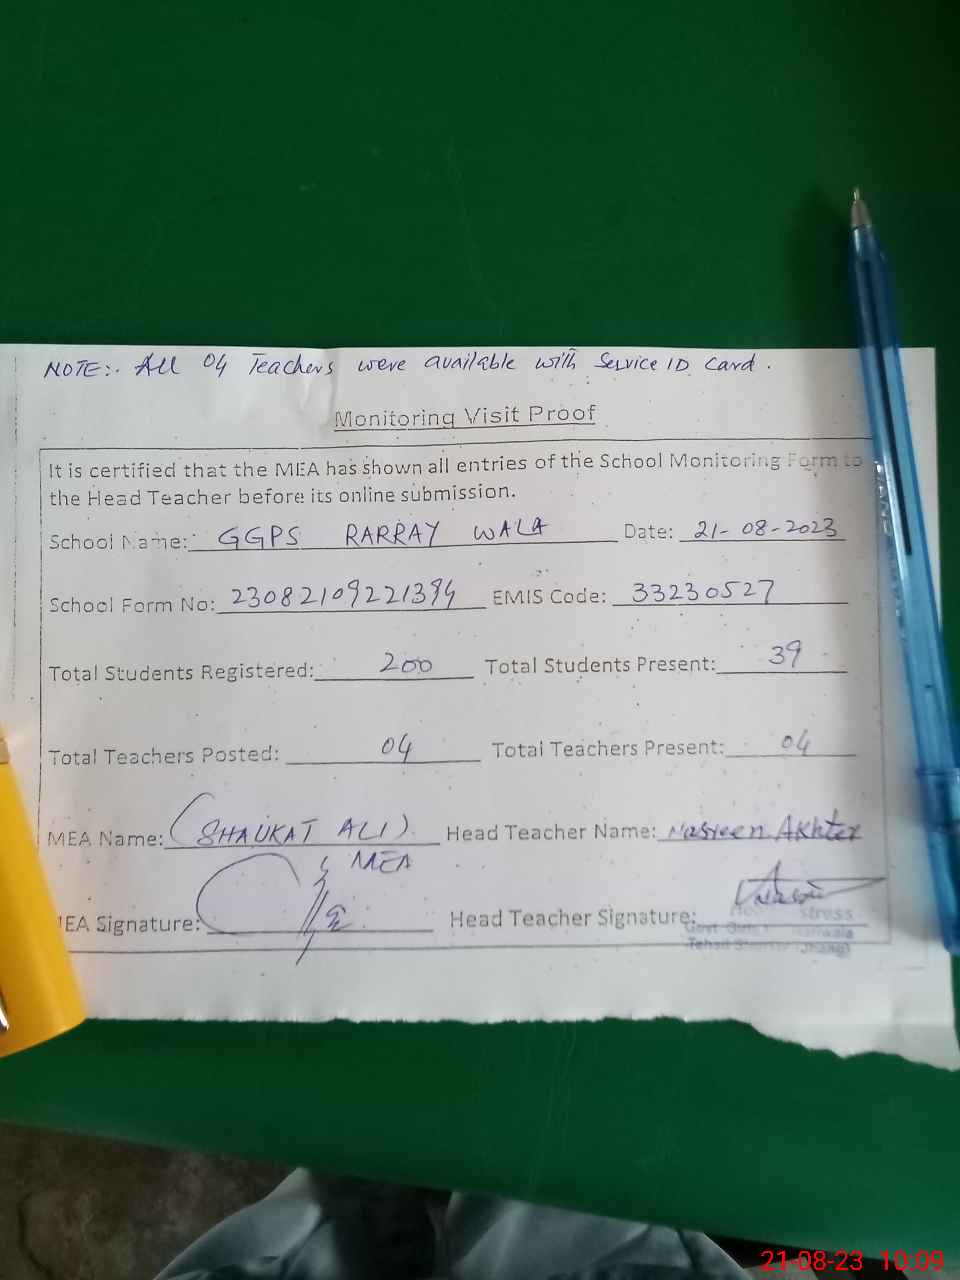 NOTE:. All 04 Teachers were available with Service ID Card.
Monitoring Visit Proof
It is certified that the MEA has shown all entries of the School Monitoring Form to
the Head Teacher before its online submission.
School Name: GGPS RARRAY WALA Date: 21-08-2023
School Form No: 23082109221394 EMIS Code: 33230527
Total Students Registered: 200 Total Students Present: 39
Total Teachers Posted: 04 Total Teachers Present: 04
MEA Name: (SHAUKAT ALI) Head Teacher Name: Nasreen Akhter
MEA
MEA Signature: Head Teacher Signature:
Govt Girls
Tehsil Jhang)
21-08-23 10:09